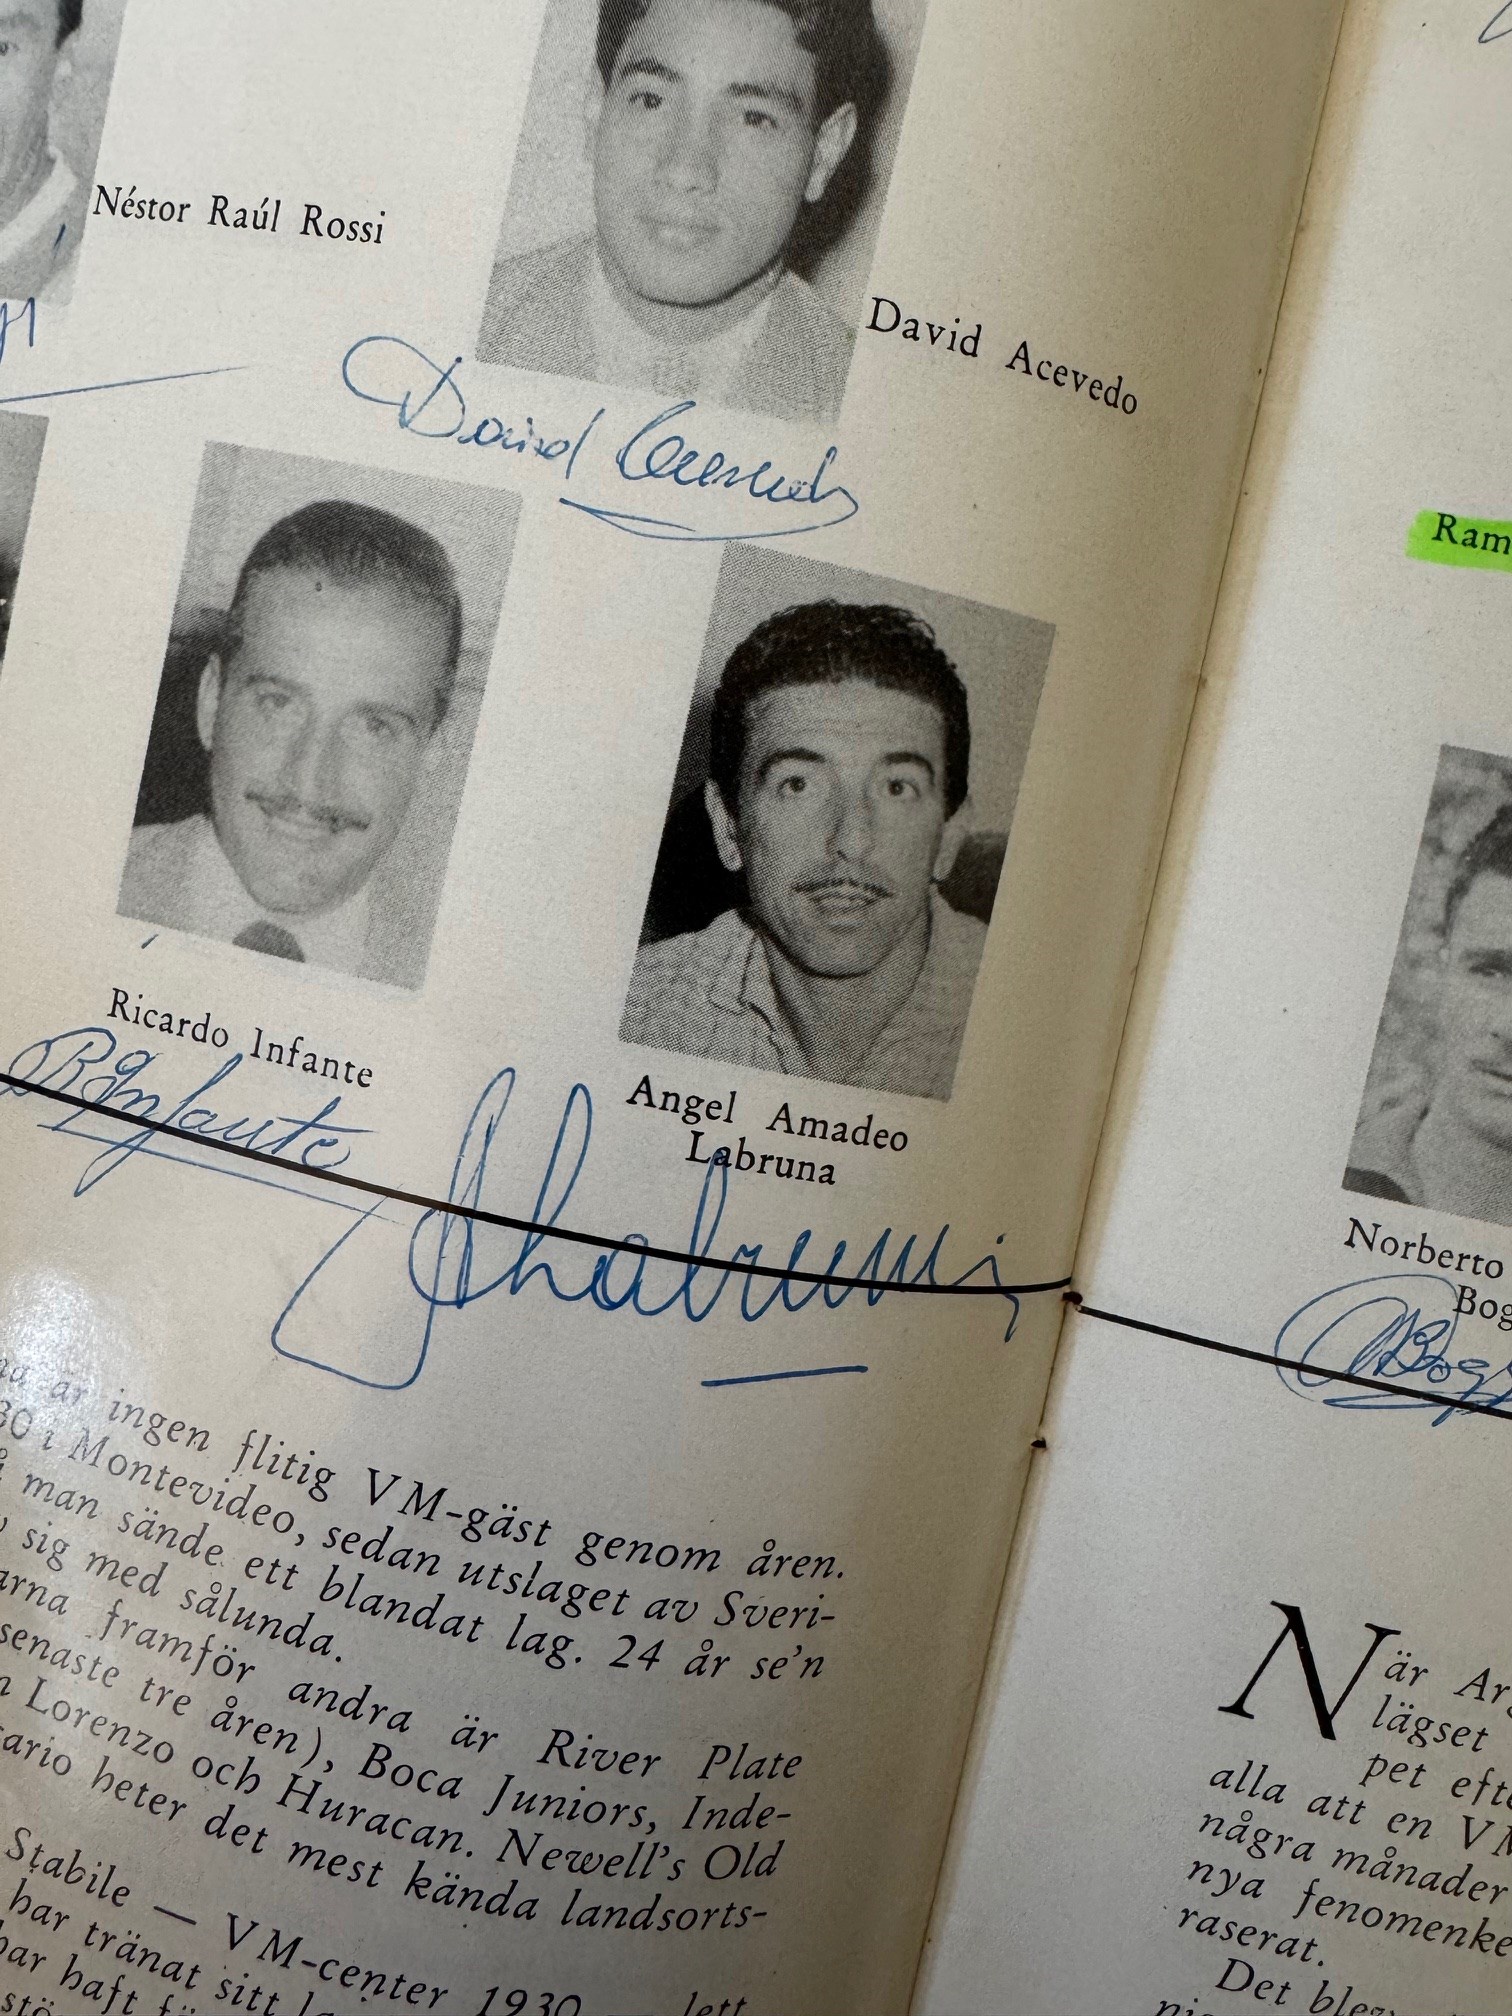 Néstor Raúl Rossi
David Acevedo
David Acevedo
Ricardo Infante
R Infante
Angel Amadeo
Labruna
Labruna
är ingen flitig VM-gäst genom åren.
i Montevideo, sedan utslaget av Sveri-
man sände ett blandat lag. 24 år se'n
sig med sålunda.
framför andra är River Plate
senaste tre åren), Boca Juniors, Inde-
Lorenzo och Huracan. Newell's Old
heter det mest kända landsorts-
Stabile — VM-center 1930
har tränat sitt
haft
lett
Ram
Norberto
Bog
När Ar
lägset
pet eft
alla att en VM
några månader
nya fenomenke
raserat.
Det blev